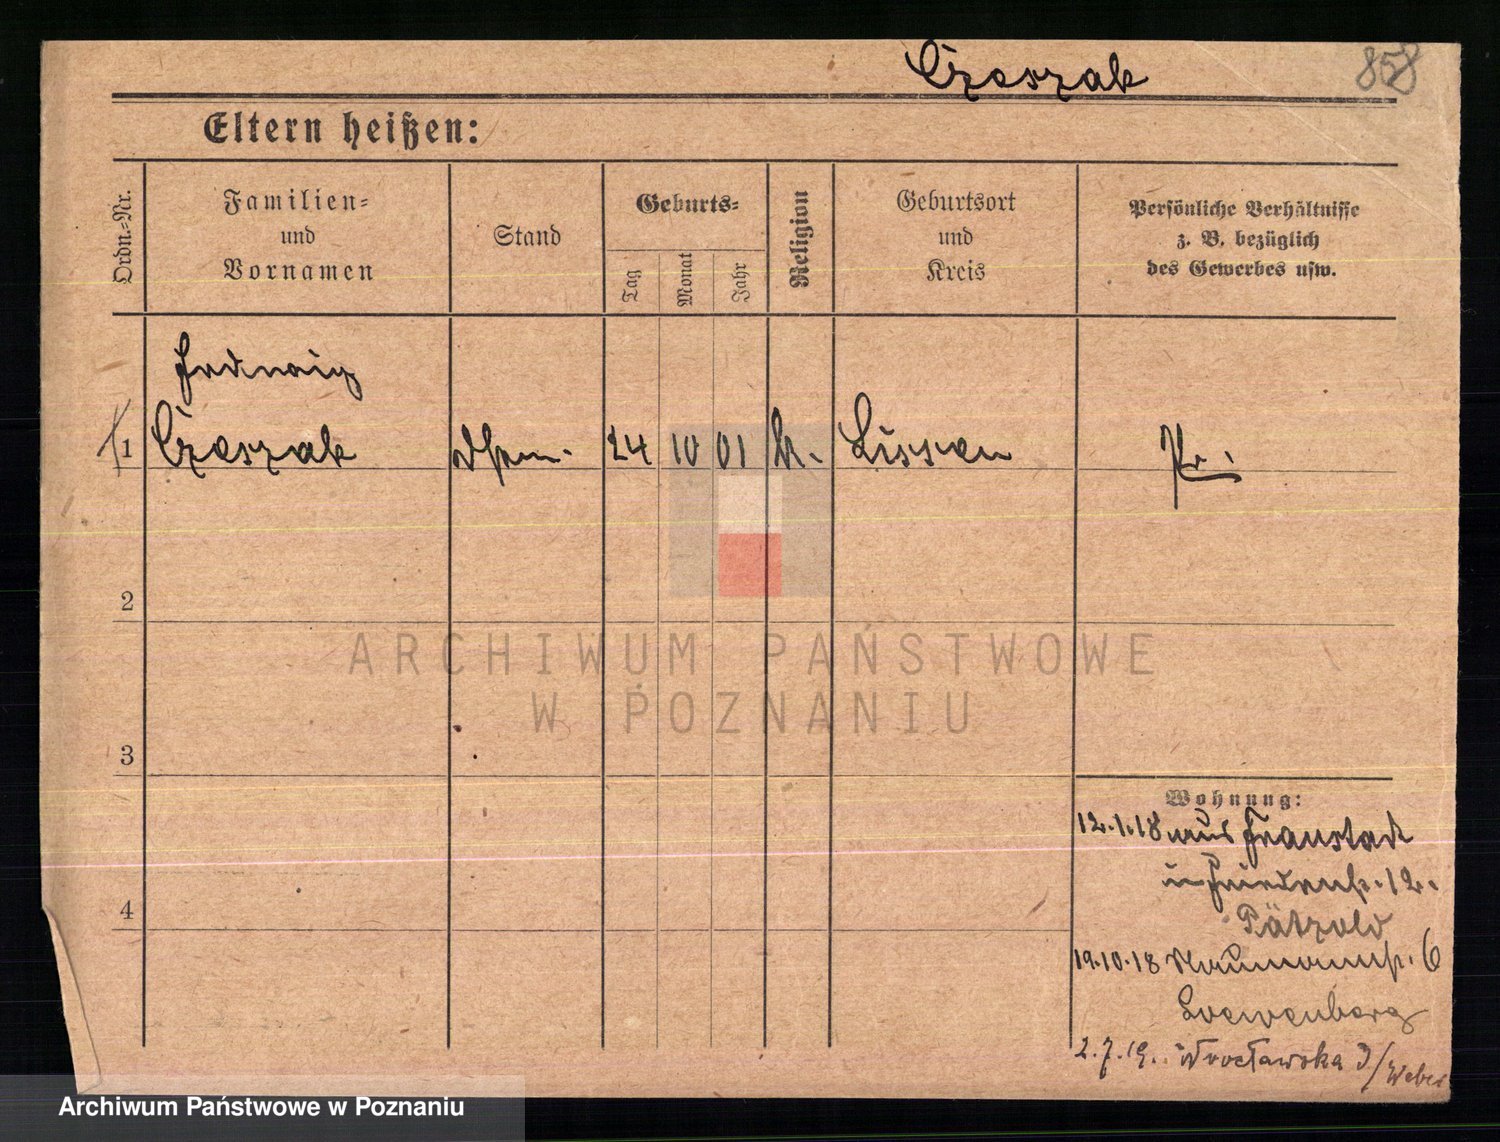 Czeszak
858
Eltern heißen:
Ordn.-Nr.
Familien-
und
Vornamen
Stand
Geburts-
Tag
Monat
Jahr
Religion
Geburtsort
und
Kreis
Persönliche Verhältnisse
z. B. bezüglich
des Gewerbes usw.
Hedwig
1 Czeszak 24 10 01 k. Lissen Pr.
2
3
4
ARCHIWUM PAŃSTWOWE
W POZNANIU
Wohnung:
12.1.18 aus Fraustadt
12.
Pätzold
19.10.18 Naumannstr. 6
Loewenberg
2.7.19. Wrocławska / Weber
Archiwum Państwowe w Poznaniu